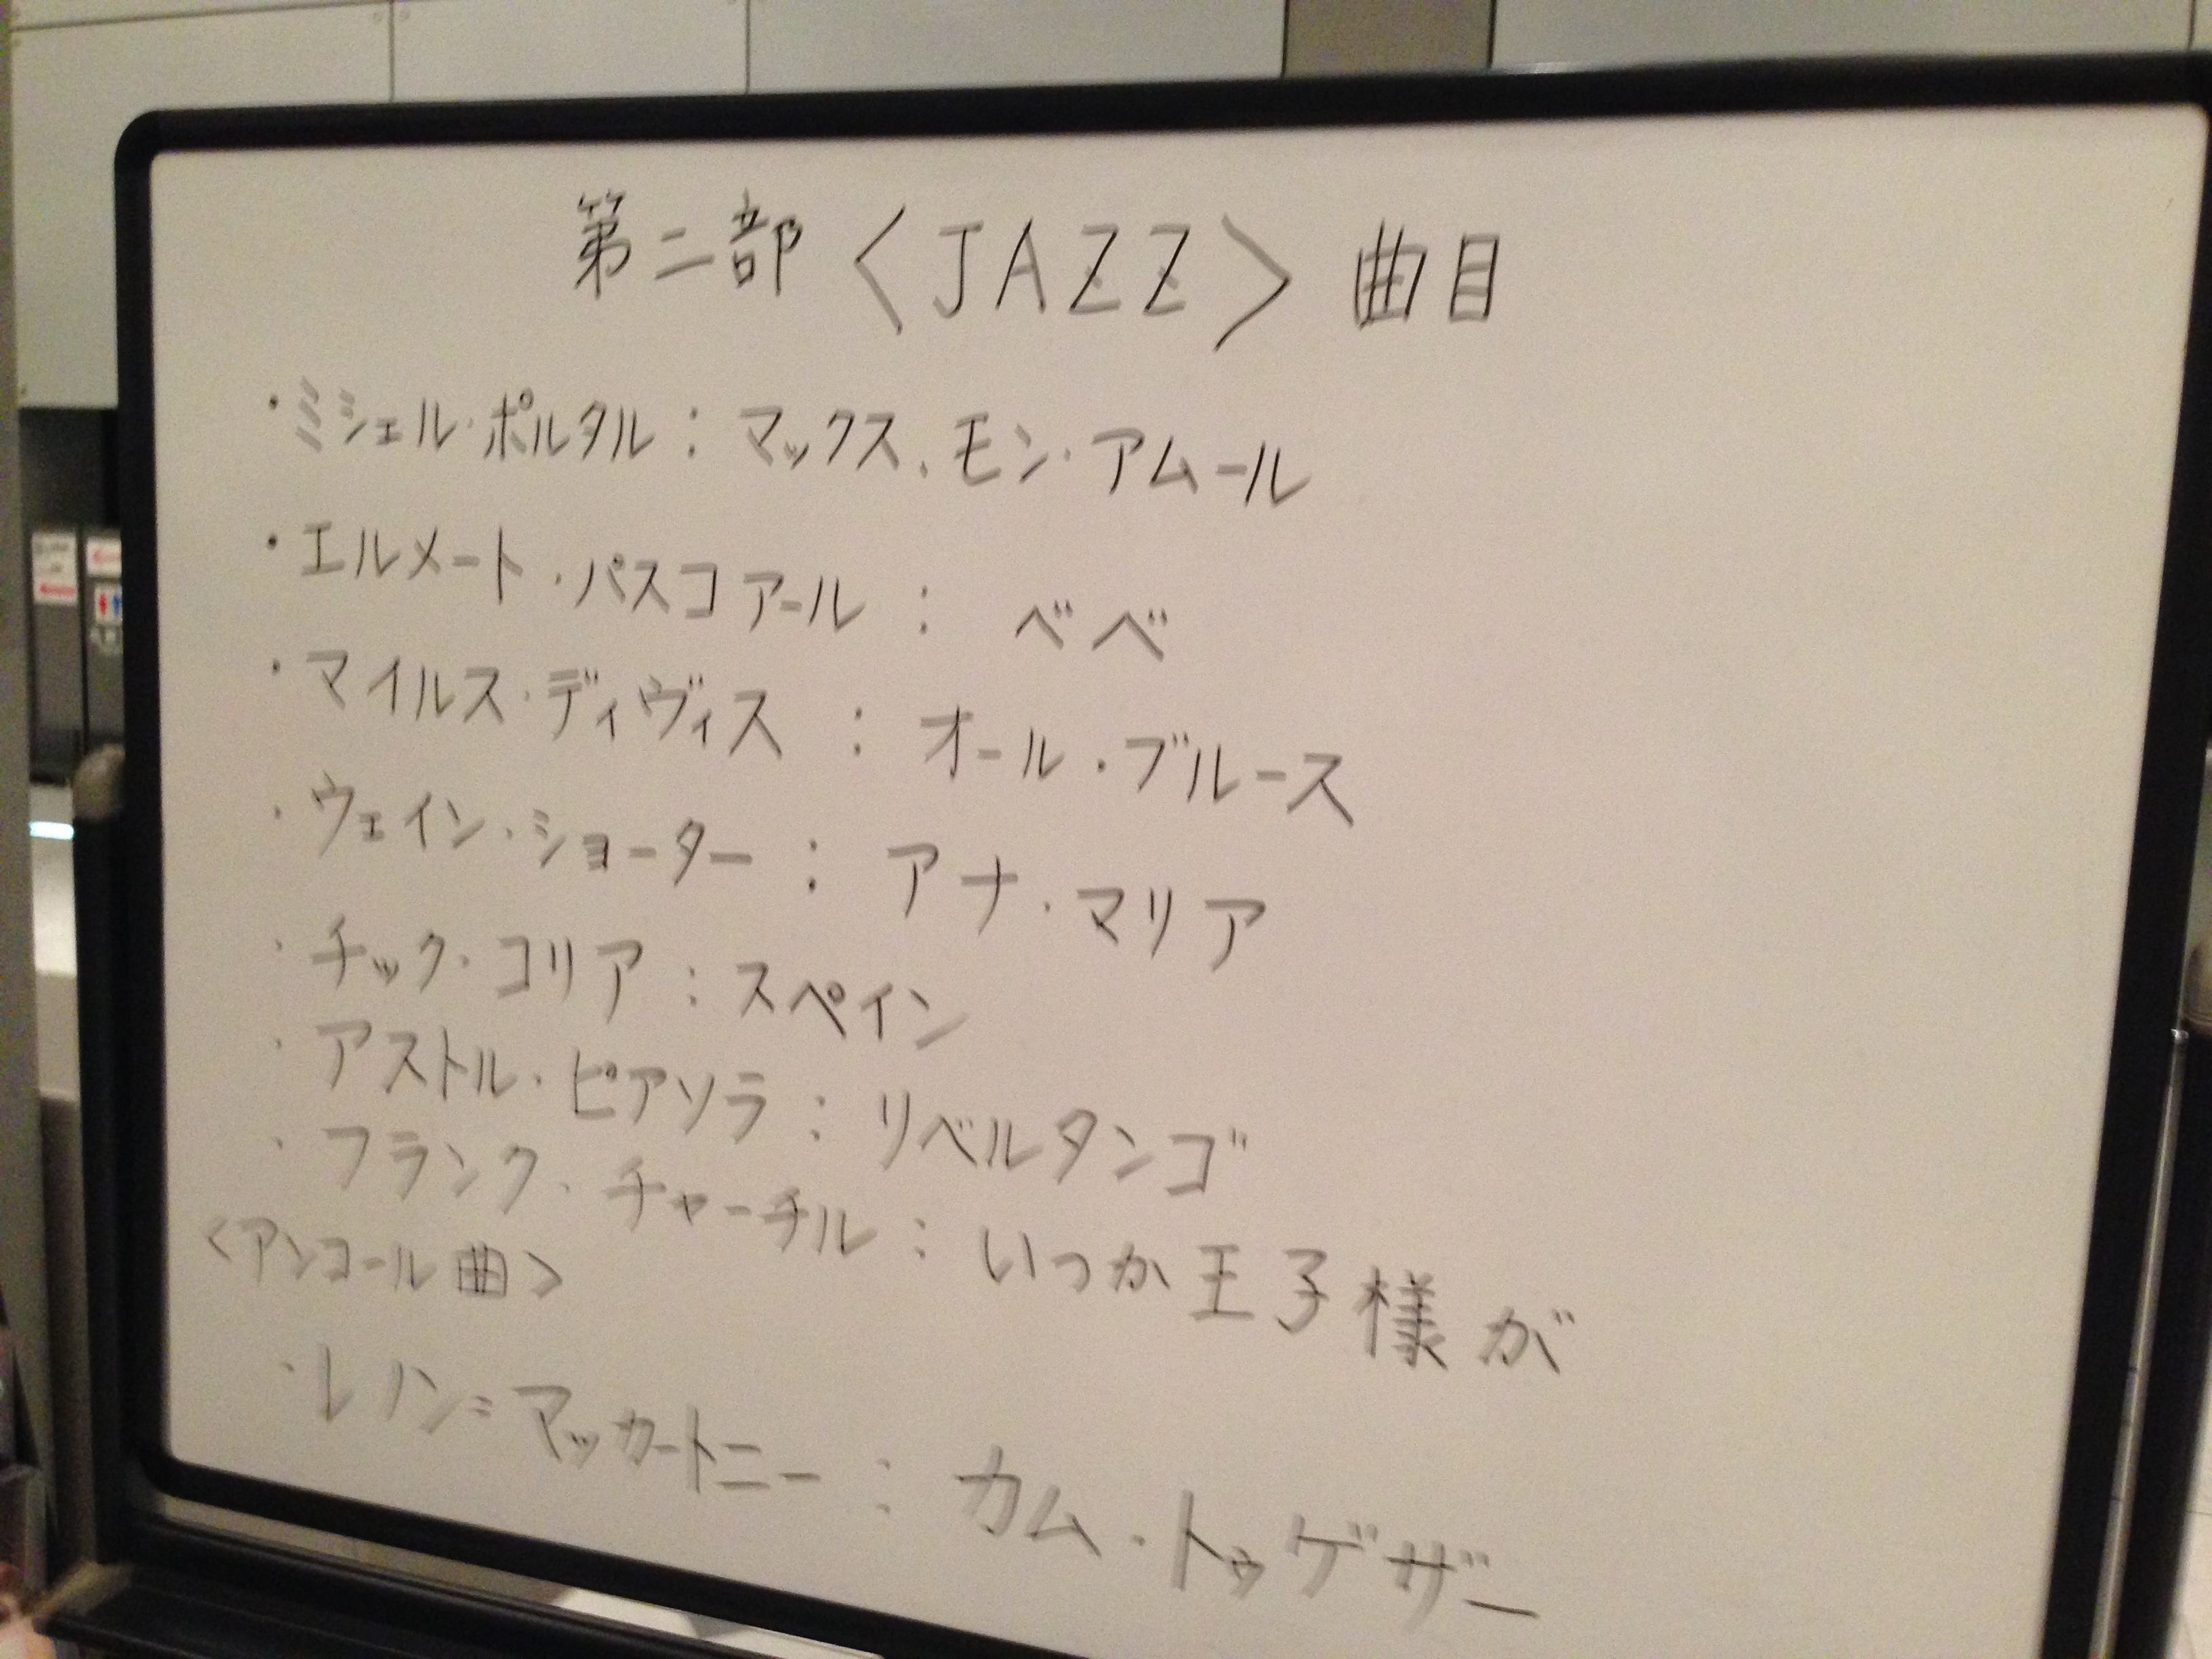 第二部〈JAZZ〉曲目
・ミシェル・ポルタル：マックス、モン・アムール
・エルメート・パスコアール：ベベ
・マイルス・ディヴィス：オール・ブルース
・ウェイン・ショーター：アナ・マリア
・チック・コリア：スペイン
・アストル・ピアソラ：リベルタンゴ
・フランク・チャーチル：いつか王子様が
〈アンコール曲〉
・レノン=マッカートニー：カム・トゥゲザー